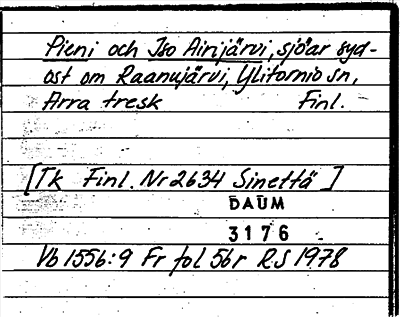 Pieni och Iso Airijärvi, sjöar syd-
ost om Raanujärvi, Ylitornio sn,
Arra tresk Finl.
[Tk Finl. Nr 2634 Sinettä]
DAUM
3176
Vb 1556:9 Fr fol 56r R.S 1978